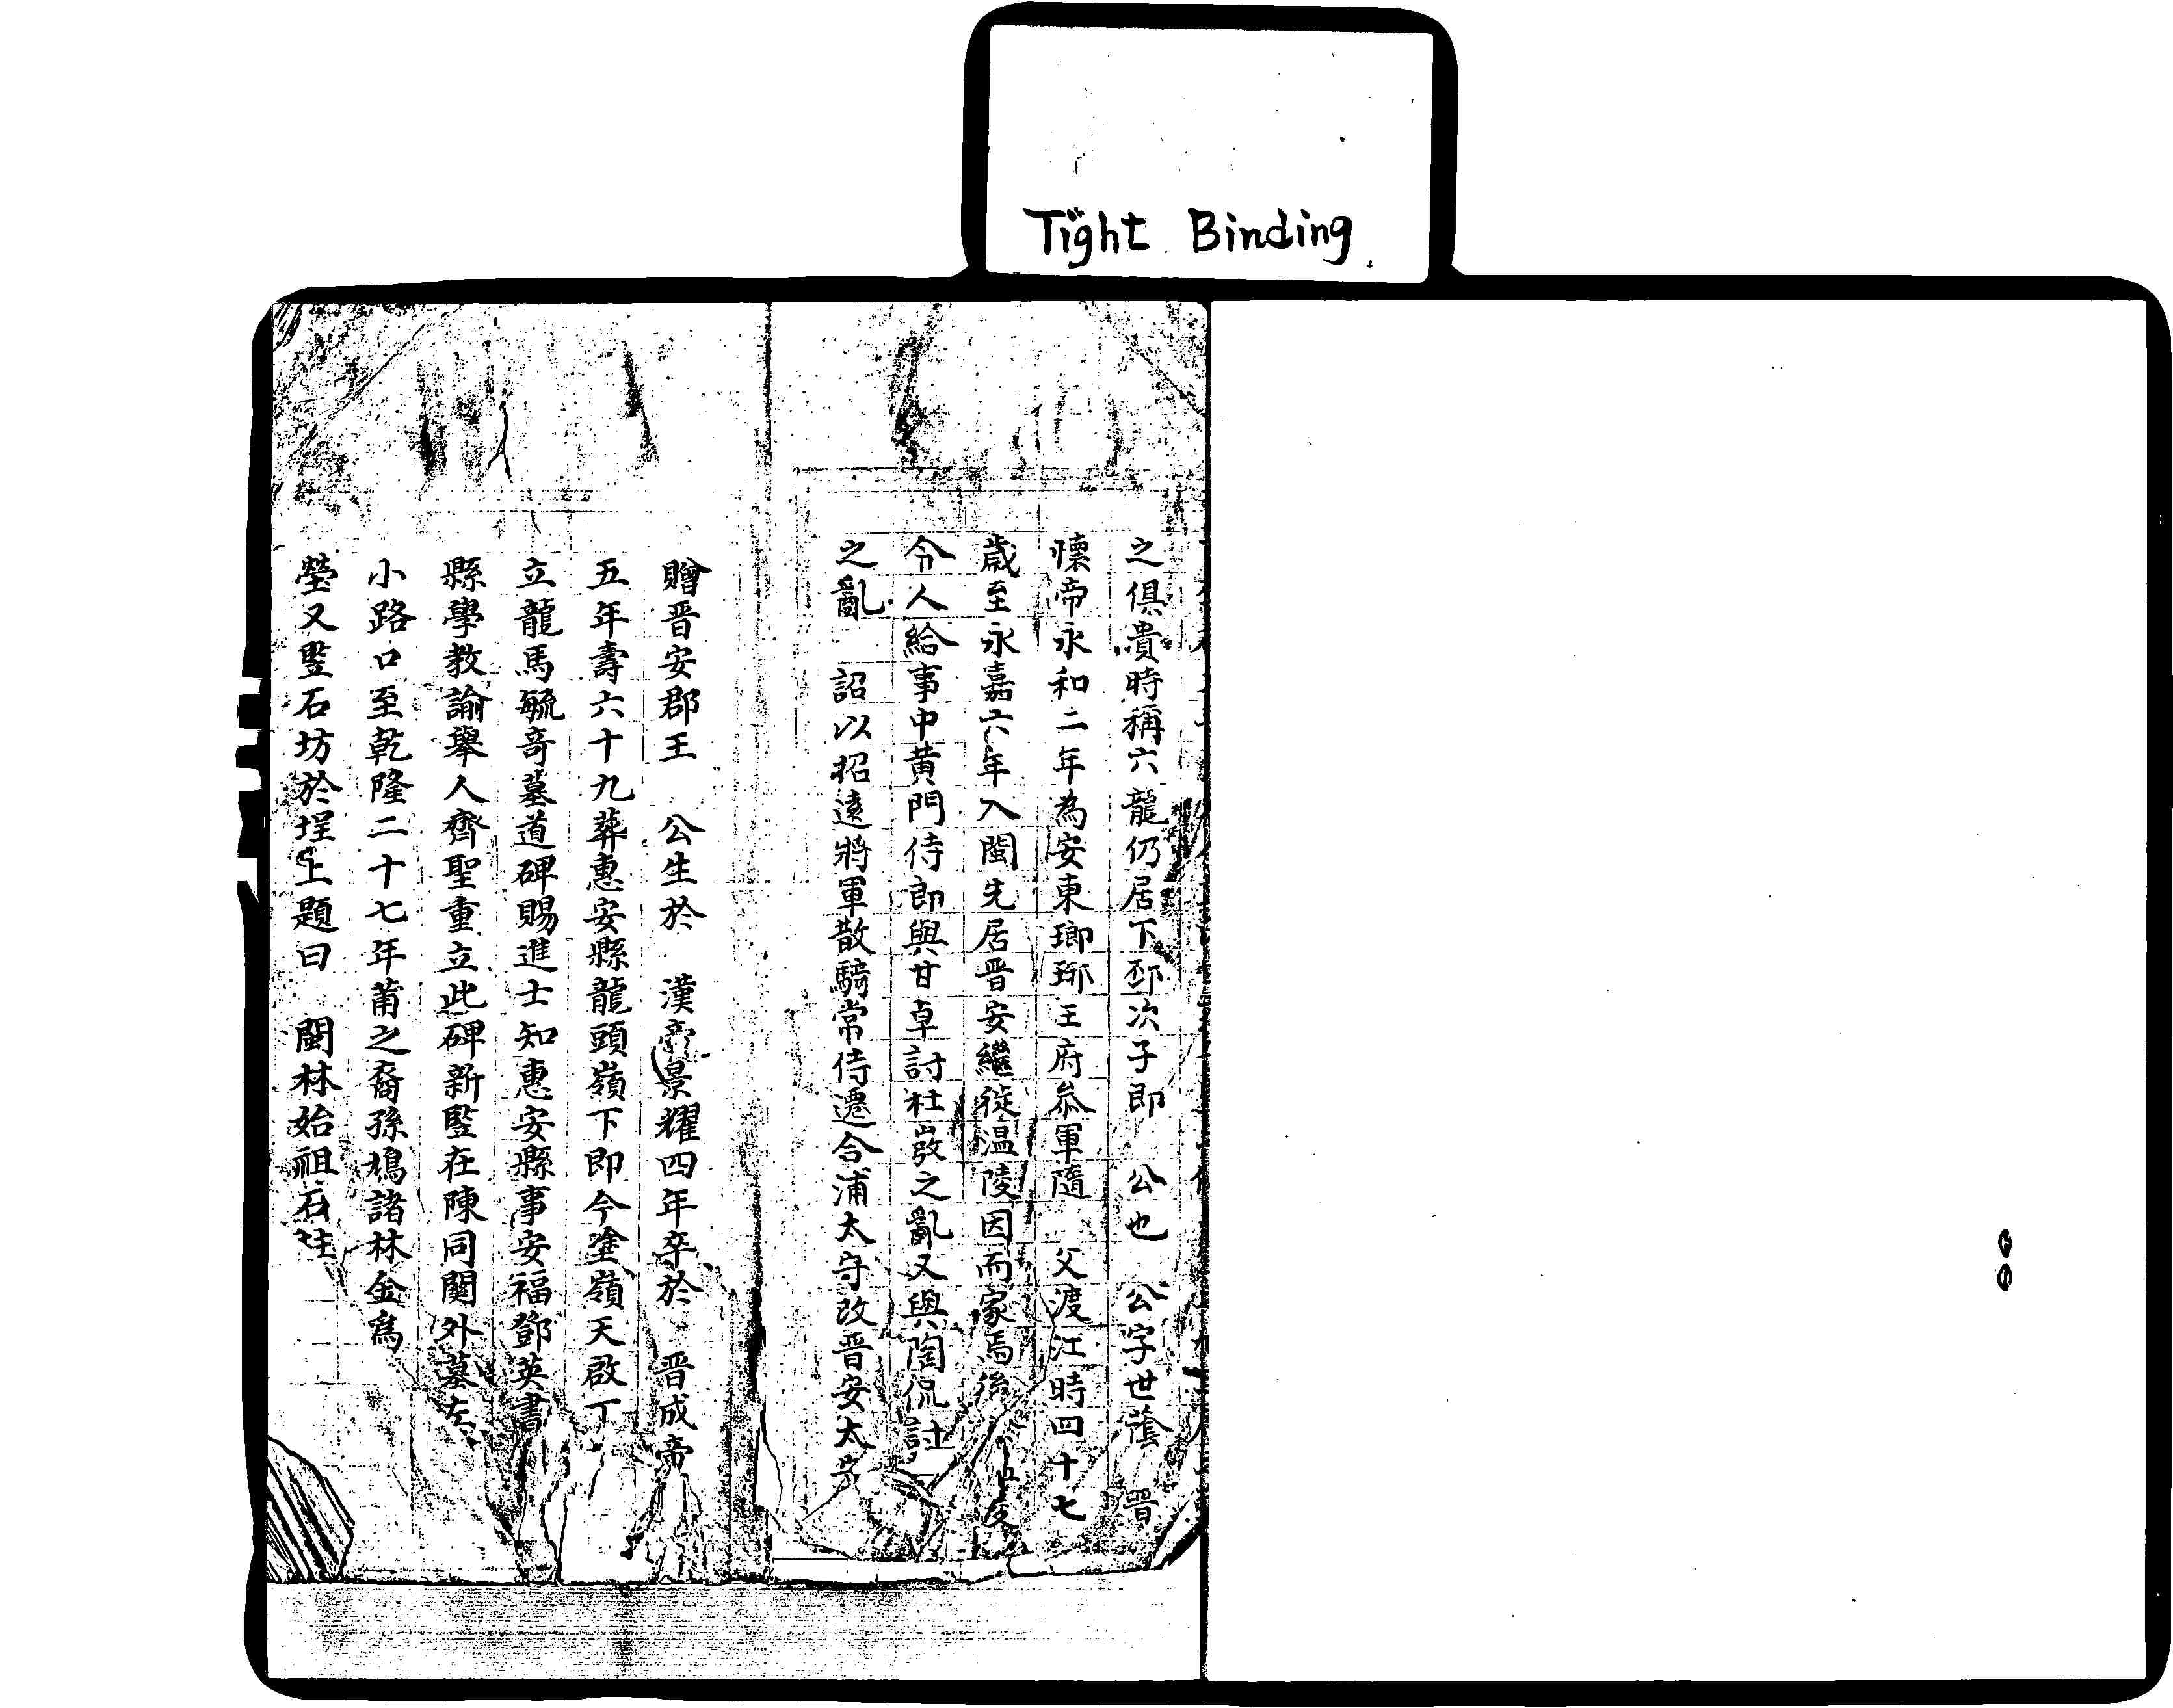 Tight Binding
之俱貴時稱六龍仍居下邳次子即　公也　公字世蔭　晋
懷帝永和二年為安東瑯琊王府叅軍隨　父渡江時四十七
歲至永嘉六年入閩先居晋安繼徙温陵因而家焉後
令人給事中黄門侍郎與甘卓討杜弢之亂又與陶侃討
之亂　詔以招遠將軍散騎常侍遷合浦太守改晋安太守
贈晋安郡王　公生於　漢帝景耀四年卒於　晋成帝
五年壽六十九葬惠安縣龍頭嶺下即今塗嶺天啟丁
立龍馬毓竒墓道碑賜進士知惠安縣事安福鄧英書
縣學教諭舉人齊聖重立此碑新竪在陳同關外墓左
小路口至乾隆二十七年莆之裔孫鳩諸林金爲
塋又竪石坊於埕上題曰　閩林始祖石柱